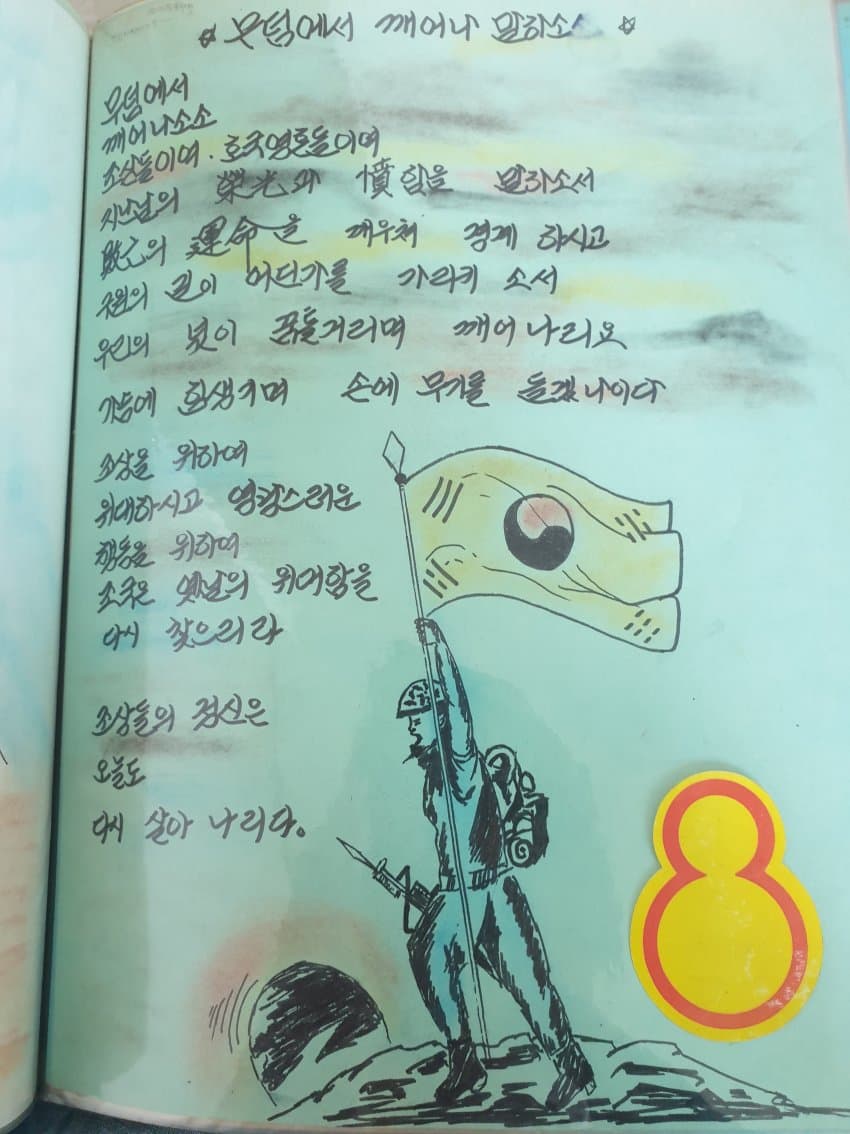 ☆ 무덤에서 깨어나 말하소 ☆
무덤에서
깨어나소소
조상들이여. 호국영혼들이여
지난날의 榮光과 憤함을 말하소서
敗亡의 運命을 깨우쳐 경계 하시고
구원의 길이 어딘가를 가라키 소서
우리의 넋이 꿈틀거리며 깨어 나리오
가슴에 희생키며 손에 무기를 들겠나이다
조상을 위하여
위대하시고 영광스러운
행동을 위하여
조국은 옛날의 위대함을
다시 찾으리라
조상들의 정신은
오늘도
다시 살아 나리다.
8